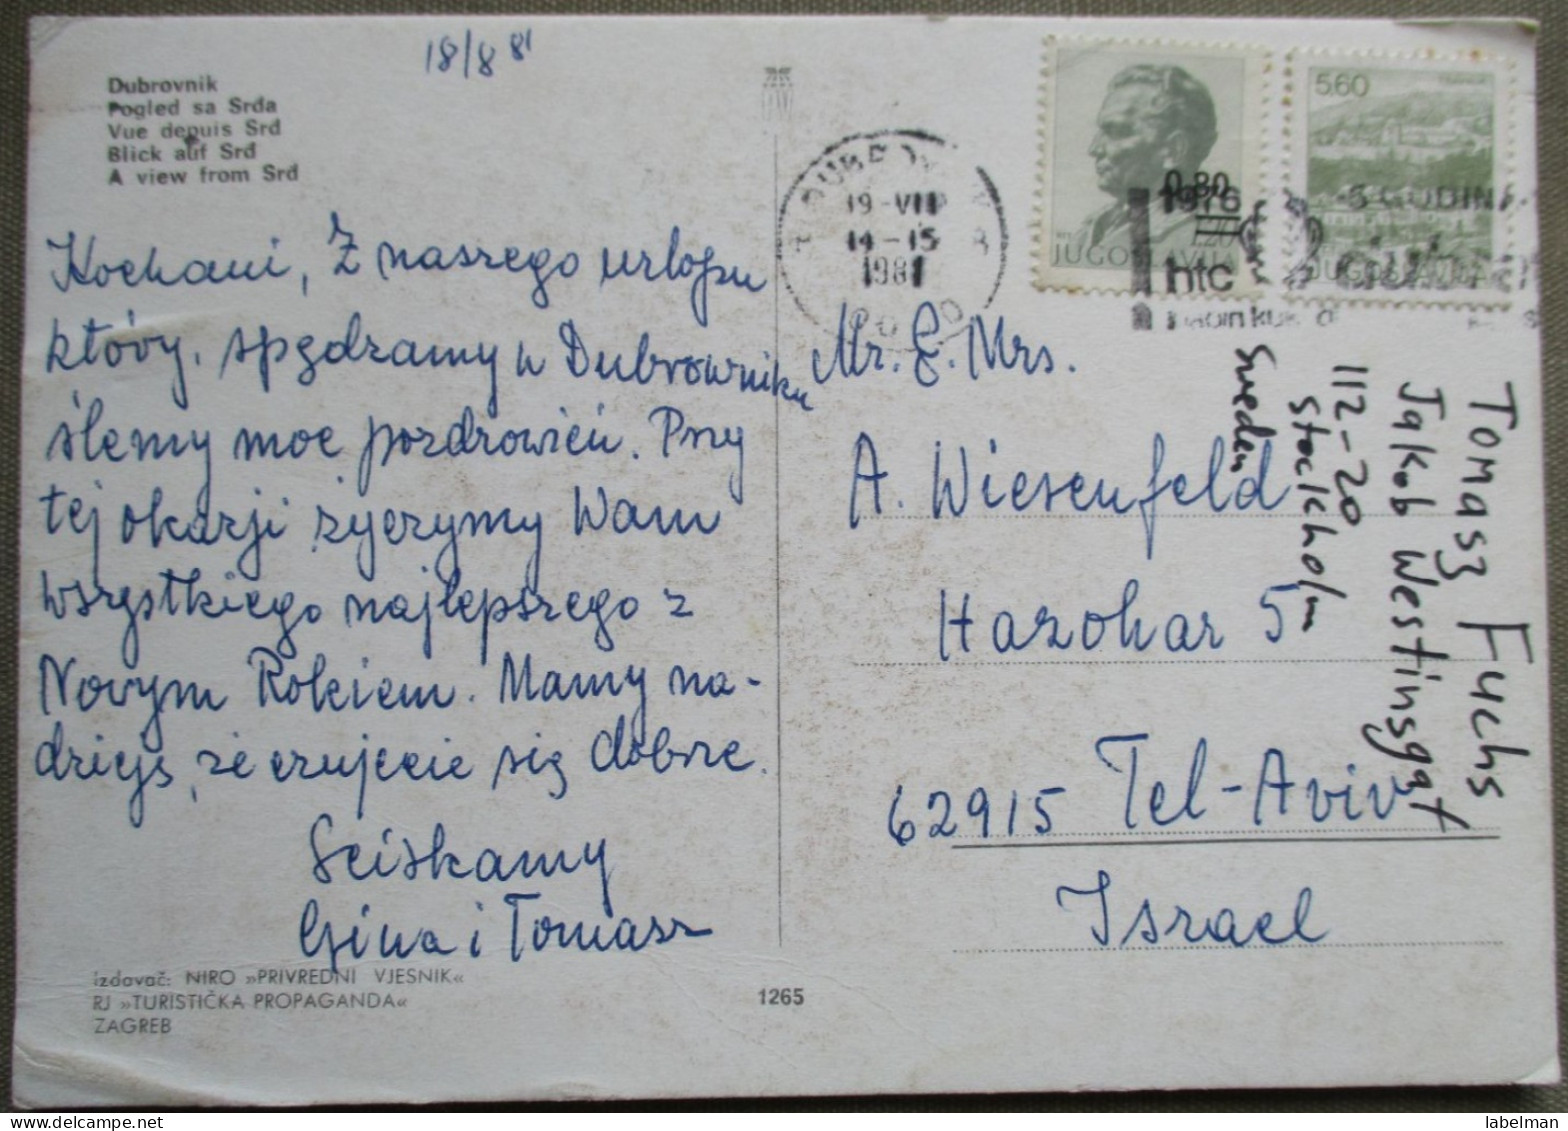 18/8 81
Dubrovnik
Pogled sa Srđa
Vue depuis Srđ
Blick auf Srđ
A view from Srđ
Kochani, Z naszego urlopu
który, spędzamy w Dubrowniku
ślemy moc pozdrowień. Przy
tej okazji życzymy Wam
wszystkiego najlepszego z
Nowym Rokiem. Mamy na-
dzieję, że czujecie się dobrze.
Sciskamy
Gina i Tomasz
izdavač: NIRO »PRIVREDNI VJESNIK«
RJ »TURISTIČKA PROPAGANDA«
ZAGREB
1265
19-VIII
14-15
1981
0.80
JUGOSLAVIJA
5.60
1976
GODINA
htc
Mr. E. Mrs.
A. Wiesenfeld
Hazohar 5
62915 Tel-Aviv
Israel
Tomasz Fuchs
Jakob Westinsgat
112-20
Stockholm
Sweden
labelman